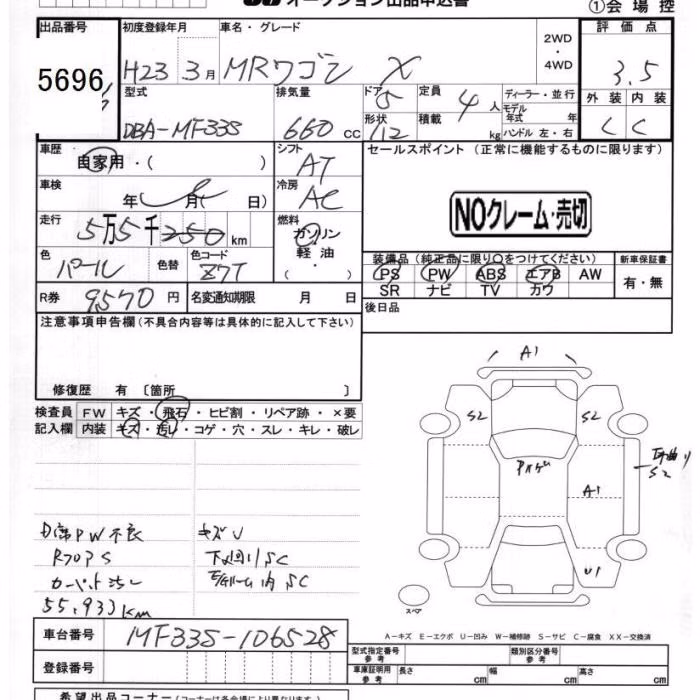 オークション出品申込書
①会場控
出品番号 初度登録年月 車名・グレード 評価点
5696 H23 3月 MRワゴン X 2WD・4WD 3.5
型式 排気量 ドア 5 定員 4人 ディーラー・並行 外装 内装
DBA-MF33S 660cc 形状 積載 kg モデル年式 年 C C
ハンドル 左・右
車歴 自家用・( ) シフト AT セールスポイント (正常に機能するものに限ります)
車検 年 月( 日) 冷房 AC
NOクレーム・売切
走行 5万5千 km 燃料 ガソリン
軽油・( )
色 パール 色替 色コード Z7T
装備品 (純正品に限り○をつけてください) 新車保証書
PS PW ABS エアB AW 有・無
SR ナビ TV カワ
R券 9570円 名変通知期限 月 日
後日品
注意事項申告欄 (不具合内容等は具体的に記入して下さい)
修復歴 有 〔箇所 〕
検査員 FW キズ・飛石・ヒビ割・リペア跡・×要
記入欄 内装 キズ・汚レ・コゲ・穴・スレ・キレ・破レ
A1
S2 S2
S2
A1
U1
スペア
PW不良 キズU
下廻り SC
ルーム内 SC
55,933km
A-キズ E-エクボ U-凹み W-補修跡 S-サビ C-腐食 XX-交換済
車台番号 MF33S-106528
型式指定番号 参考 類別区分番号 参考
登録番号
車庫証明用 参考 長さ cm 幅 cm 高さ cm
希望出品コーナー